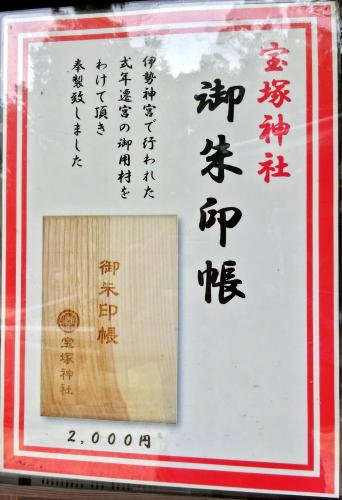 宝塚神社
御朱印帳
伊勢神宮で行われた
式年遷宮の御用材を
わけて頂き
奉製致しました
御朱印帳
宝塚神社
2,000円